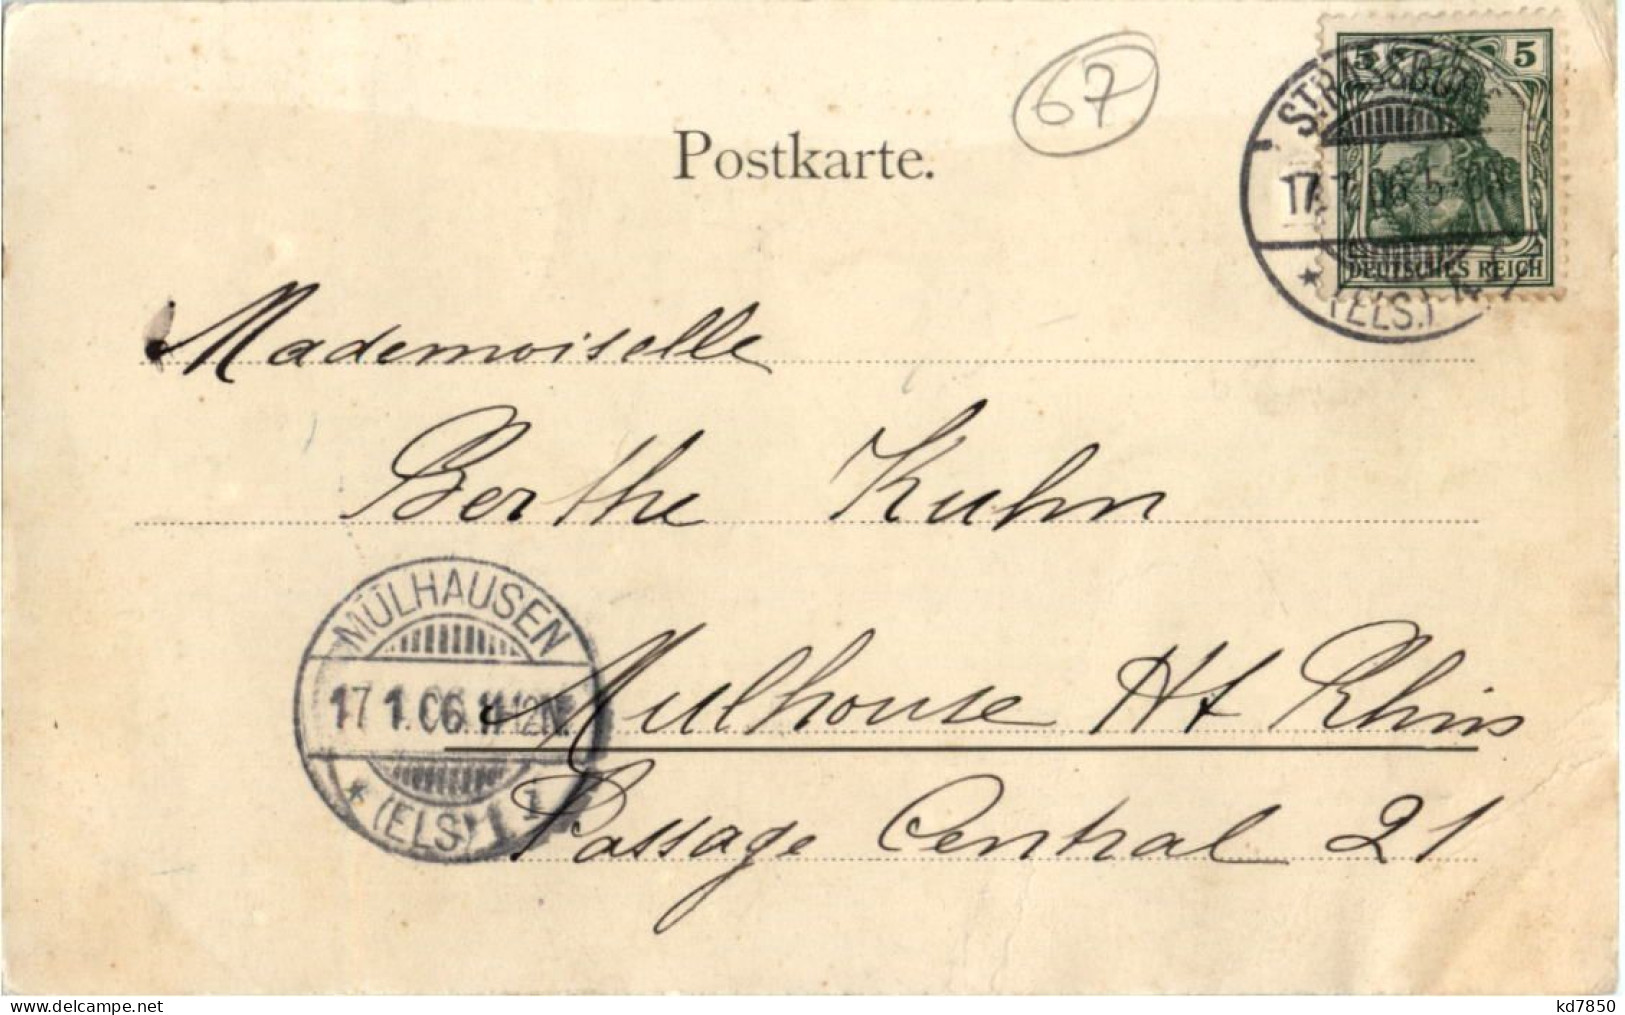 67
Postkarte.
5 5
DEUTSCHES REICH
STRASSBURG
17.1.06.5-6N
* (ELS.) 4
Mademoiselle
Berthe Kuhn
MÜLHAUSEN
17.1.06.11-12N.
* (ELS.) 1
Mulhouse Ht Rhin
Passage Central 21
www.delcampe.net
kd7850